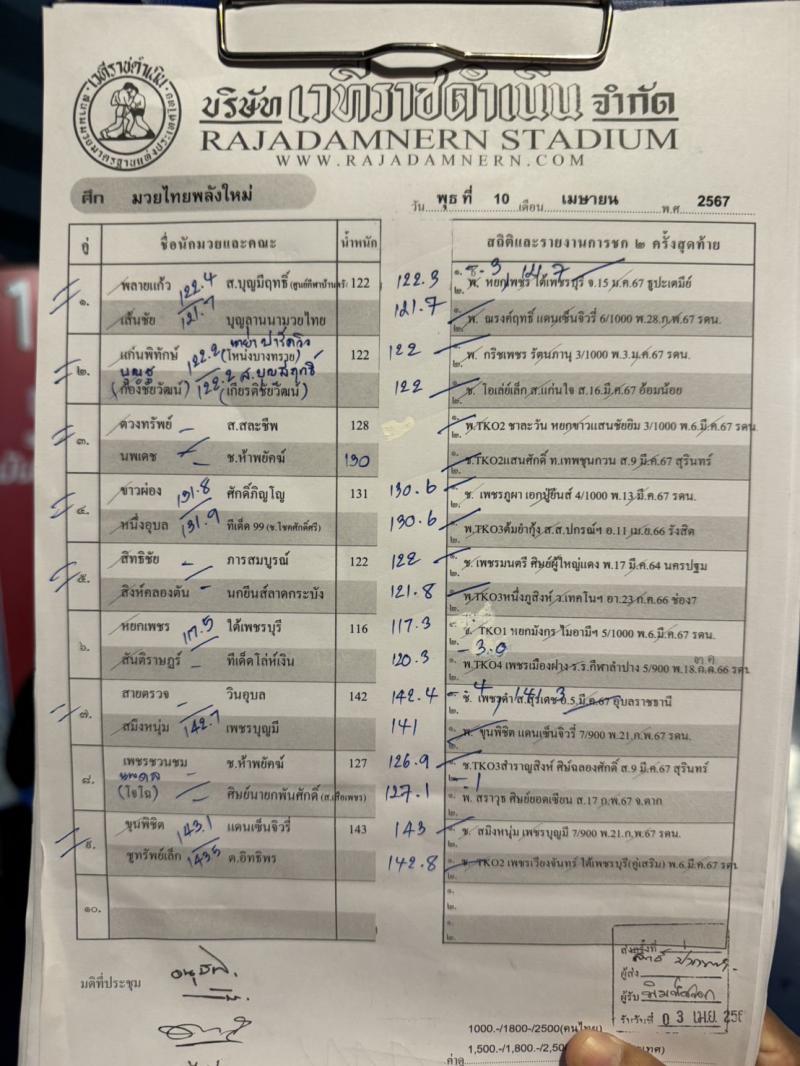 เวทีราชดำเนิน
สนามมวยมาตรฐานแห่งประเทศไทย
บริษัท เวทีราชดำเนิน จำกัด
RAJADAMNERN STADIUM
WWW.RAJADAMNERN.COM
ศึก มวยไทยพลังใหม่ วัน พุธ ที่ 10 เดือน เมษายน พ.ศ 2567
คู่ ชื่อนักมวยและคณะ น้ำหนัก สถิติและรายงานการชก ๒ ครั้งสุดท้าย
๑. พลายแก้ว 122.4 ส.บุญมีฤทธิ์ 122 122.3 ๑. พ. หยกเพชร ใต้เพชรบุรี จ.15 ม.ค.67 ธูปะเตมีย์
เส้นชัย 121.7 บุญลานนามวยไทย 121.7 ๒. พ. ณรงค์ฤทธิ์ แดนเซ็นจิวรี่ 6/1000 พ.28.ก.พ.67 รดน.
๒. แก่นพิทักษ์ 122.2 (โหน่งบางทราย) 122 122 พ. กริชเพชร รัตนภานุ 3/1000 พ.3.ม.ค.67 รดน.
บุญชู 122.2 ส.บุญสฤทธิ์
(ก้องชัยวัฒน์) (เกียรติชัยวัฒน์) 122 ช. โอเล่ย์เล็ก ส.แก่นใจ ส.16.มี.ค.67 อ้อมน้อย
๓. ดวงทรัพย์ ส.สละชีพ 128 พ.TKO2 ชาละวัน หยกขาวแสนชัยยิม 3/1000 พ.6.มี.ค.67 รดน.
นพเดช ช.ห้าพยัคฆ์ 130 ช.TKO2แสนศักดิ์ ท.เทพชุนกวน ส.9 มี.ค.67 สุรินทร์
๔. ขาวผ่อง 131.8 ศักดิ์ภิญโญ 131 130.6 ช. เพชรภูผา เอกปู่ยีนส์ 4/1000 พ.13.มี.ค.67 รดน.
หนึ่งอุบล 131.9 ทีเด็ด 99 (ช.โชคศักดิ์ศรี) 130.6 พ.TKO3ต้มยำกุ้ง ส.ส.ปกรณ์ฯ อ.11 เม.ย.66 รังสิต
๕. สิทธิชัย ภารสมบูรณ์ 122 122 ช. เพชรมนตรี ศิษย์ผู้ใหญ่แดง พ.17 มี.ค.64 นครปฐม
สิงห์คลองตัน นกยีนส์ลาดกระบัง 121.8 พ.TKO3หนึ่งภูสิงห์ ว.เทคโนฯ อา.23 ก.ค.66 ช่อง7
๖. หยกเพชร 117.5 ใต้เพชรบุรี 116 117.3 ช. TKO1 หยกมังกร ไมอามีฯ 5/1000 พ.6.มี.ค.67 รดน.
สันติราษฎร์ ทีเด็ดโล่ห์เงิน 120.3 พ.TKO4 เพชรเมืองฝาง ร.ร.กีฬาลำปาง 5/900 พ.18.ต.ค.66 รดน
๗. สายตรวจ วินอุบล 142 142.4 ช. เพชรดำ ส.สุรเดช อ.5.มี.ค.67 อุบลราชธานี
สมิงหนุ่ม 142.7 เพชรบุญมี 141 พ. ขุนพิชิต แดนเซ็นจิวรี่ 7/900 พ.21.ก.พ.67 รดน.
๘. เพชรชวนชม ช.ห้าพยัคฆ์ 127 126.9 ช.TKO3สำราญสิงห์ ศิษ์ฉลองศักดิ์ ส.9 มี.ค.67 สุรินทร์
(โจโฉ) ศิษย์นายกพันศักดิ์ (ส.เสือเพชร) 127.1 พ. สราวุธ ศิษย์ยอดเซียน ส.17 ก.พ.67 จ.ตาก
๙. ขุนพิชิต 143.1 แดนเซ็นจิวรี่ 143 143 ช. สมิงหนุ่ม เพชรบุญมี 7/900 พ.21.ก.พ.67 รดน.
ชูทรัพย์เล็ก 143.5 ต.อิทธิพร 142.8 ช. TKO2 เพชรเวียงจันทร์ ใต้เพชรบุรี(คู่เสริม) พ.6.มี.ค.67 รดน
๑๐. ๑.
๒.
มติที่ประชุม
ส่งครั้งที่
ผู้ส่ง
ผู้รับ
รับวันที่ 0 3 เม.ย. 256
1000.-/1800-/2500(คนไทย)
1,500.-/1,800.-/2,50
ค่าดู